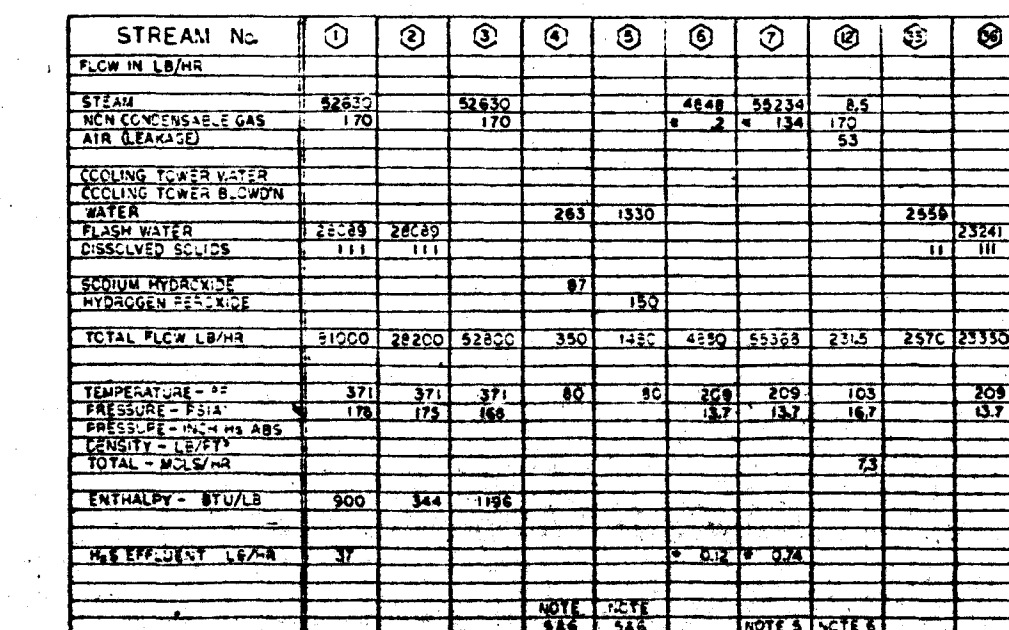 STREAM No. 1 2 3 4 5 6 7 12 35 36
FLOW IN LB/HR
STEAM 52630 52630 4848 55234 8.5
NON CONDENSABLE GAS 170 170 * .2 * 134 170
AIR (LEAKAGE) 53
COOLING TOWER WATER
COOLING TOWER BLOWD'N
WATER 263 1330 2559
FLASH WATER 28089 28089 23241
DISSOLVED SOLIDS 111 111 11 111
SODIUM HYDROXIDE 87
HYDROGEN PEROXIDE 150
TOTAL FLOW LB/HR 81000 28200 52800 350 1480 4850 55368 231.5 2570 23350
TEMPERATURE - °F 371 371 371 80 80 209 209 103 209
PRESSURE - PSIA 175 13.7 13.7 16.7 13.7
PRESSURE - INCH Hg ABS
DENSITY - LB/FT³
TOTAL - MOLS/HR 7.3
ENTHALPY - BTU/LB 900 344 1196
H₂S EFFLUENT LB/HR 37 * 0.12 * 0.74
NOTE NOTE
5&6 5&6 NOTE 5 NOTE 5